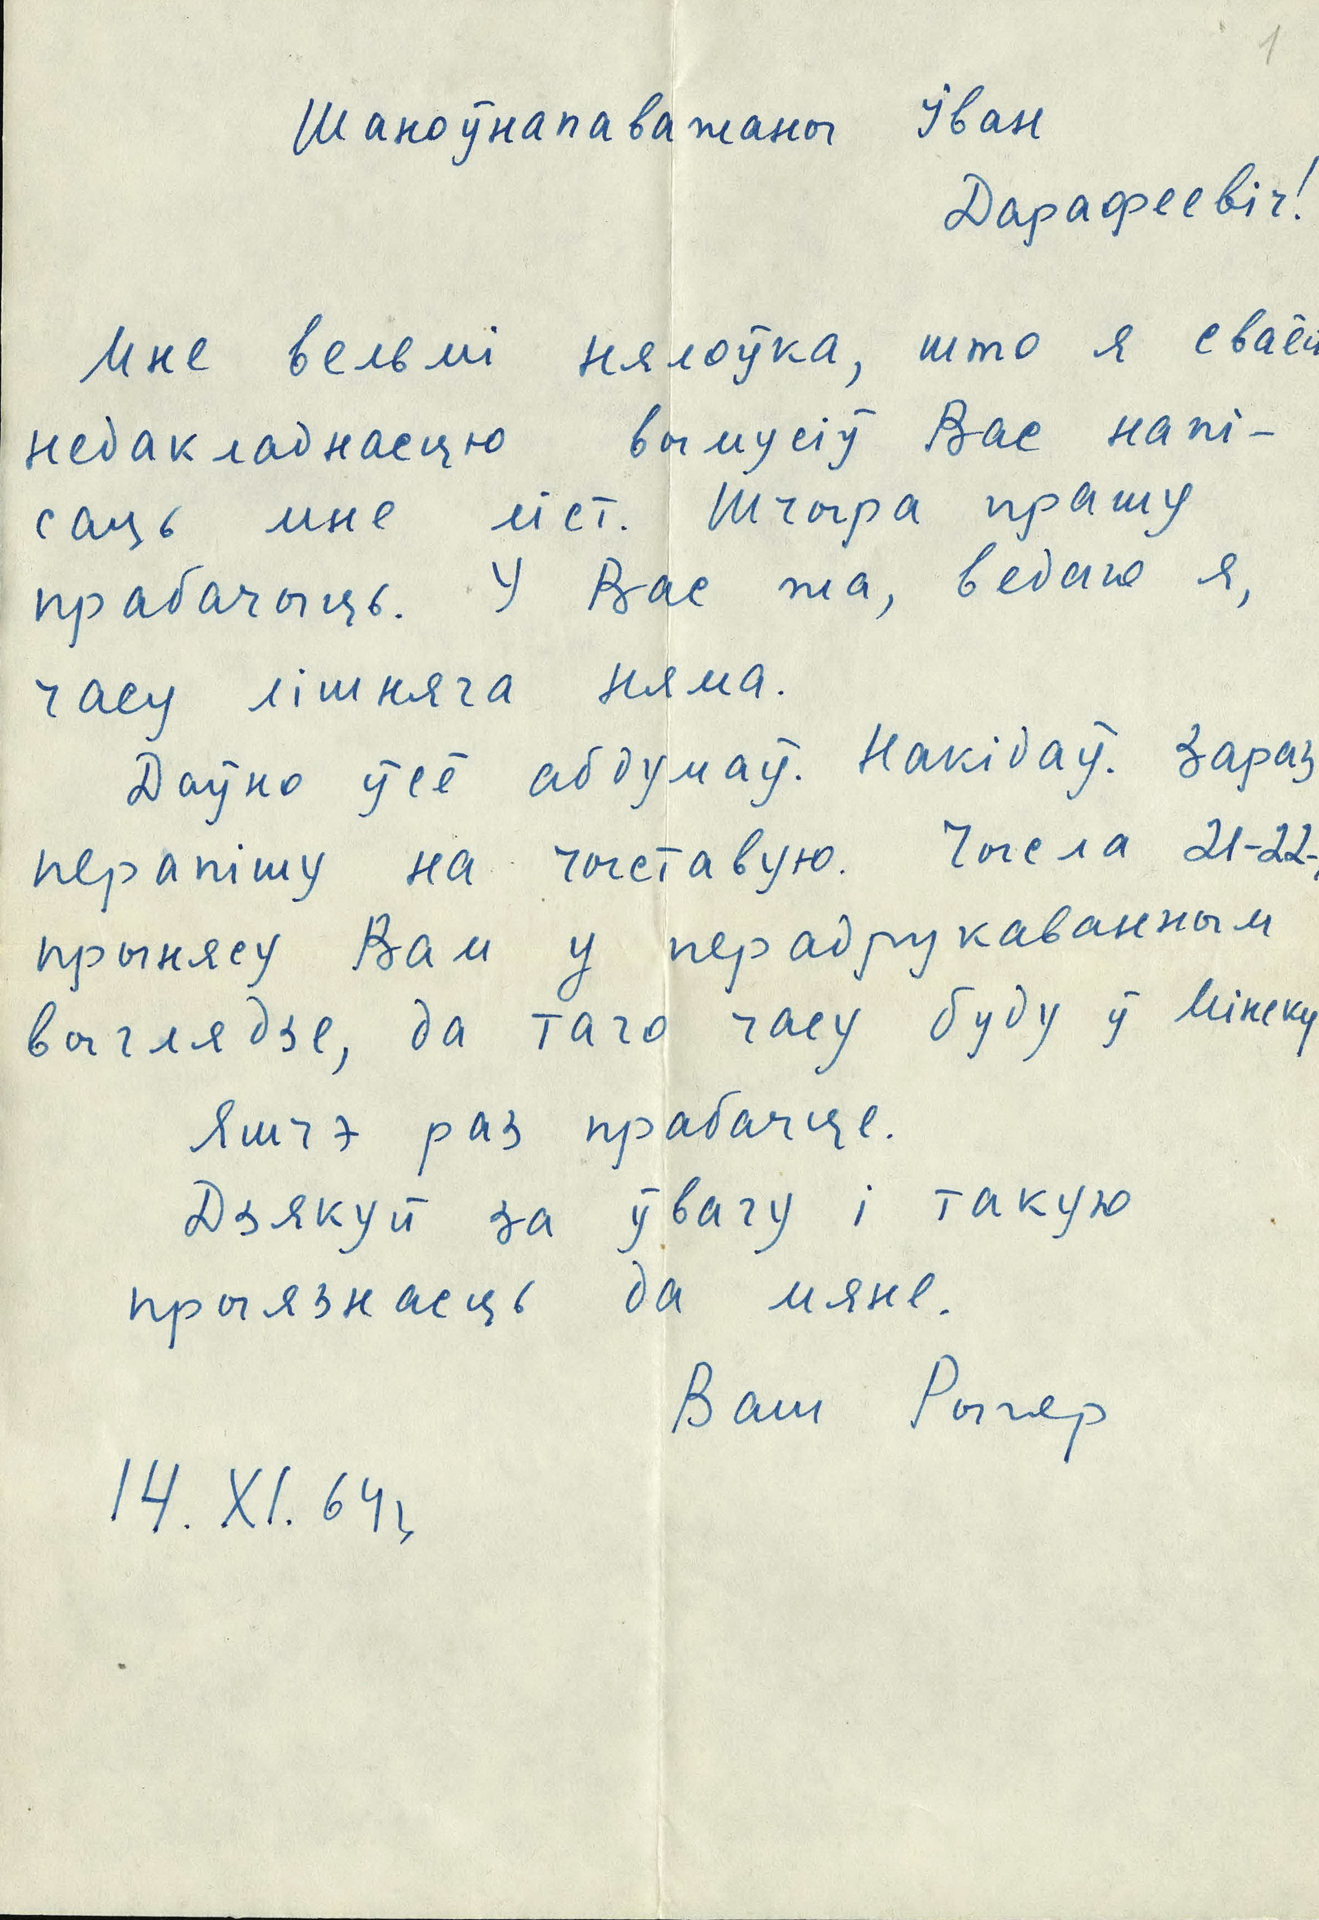 1
Шаноўнапаважаны Іван
Дарафеевіч!
Мне вельмі нялоўка, што я сваёй
недакладнасцю вымусіў Вас напі-
саць мне ліст. Шчыра прашу
прабачыць. У Вас жа, ведаю я,
часу лішняга няма.
Даўно ўсё абдумаў. Накідаў. Зараз
перапішу на чыставую. Чысла 21-22-
прынясу Вам у перадрукаванным
выглядзе, да таго часу буду ў Мінску
Яшчэ раз прабачце.
Дзякуй за ўвагу і такую
прыязнасць да мяне.
Ваш Рыгор
14. XI. 64г